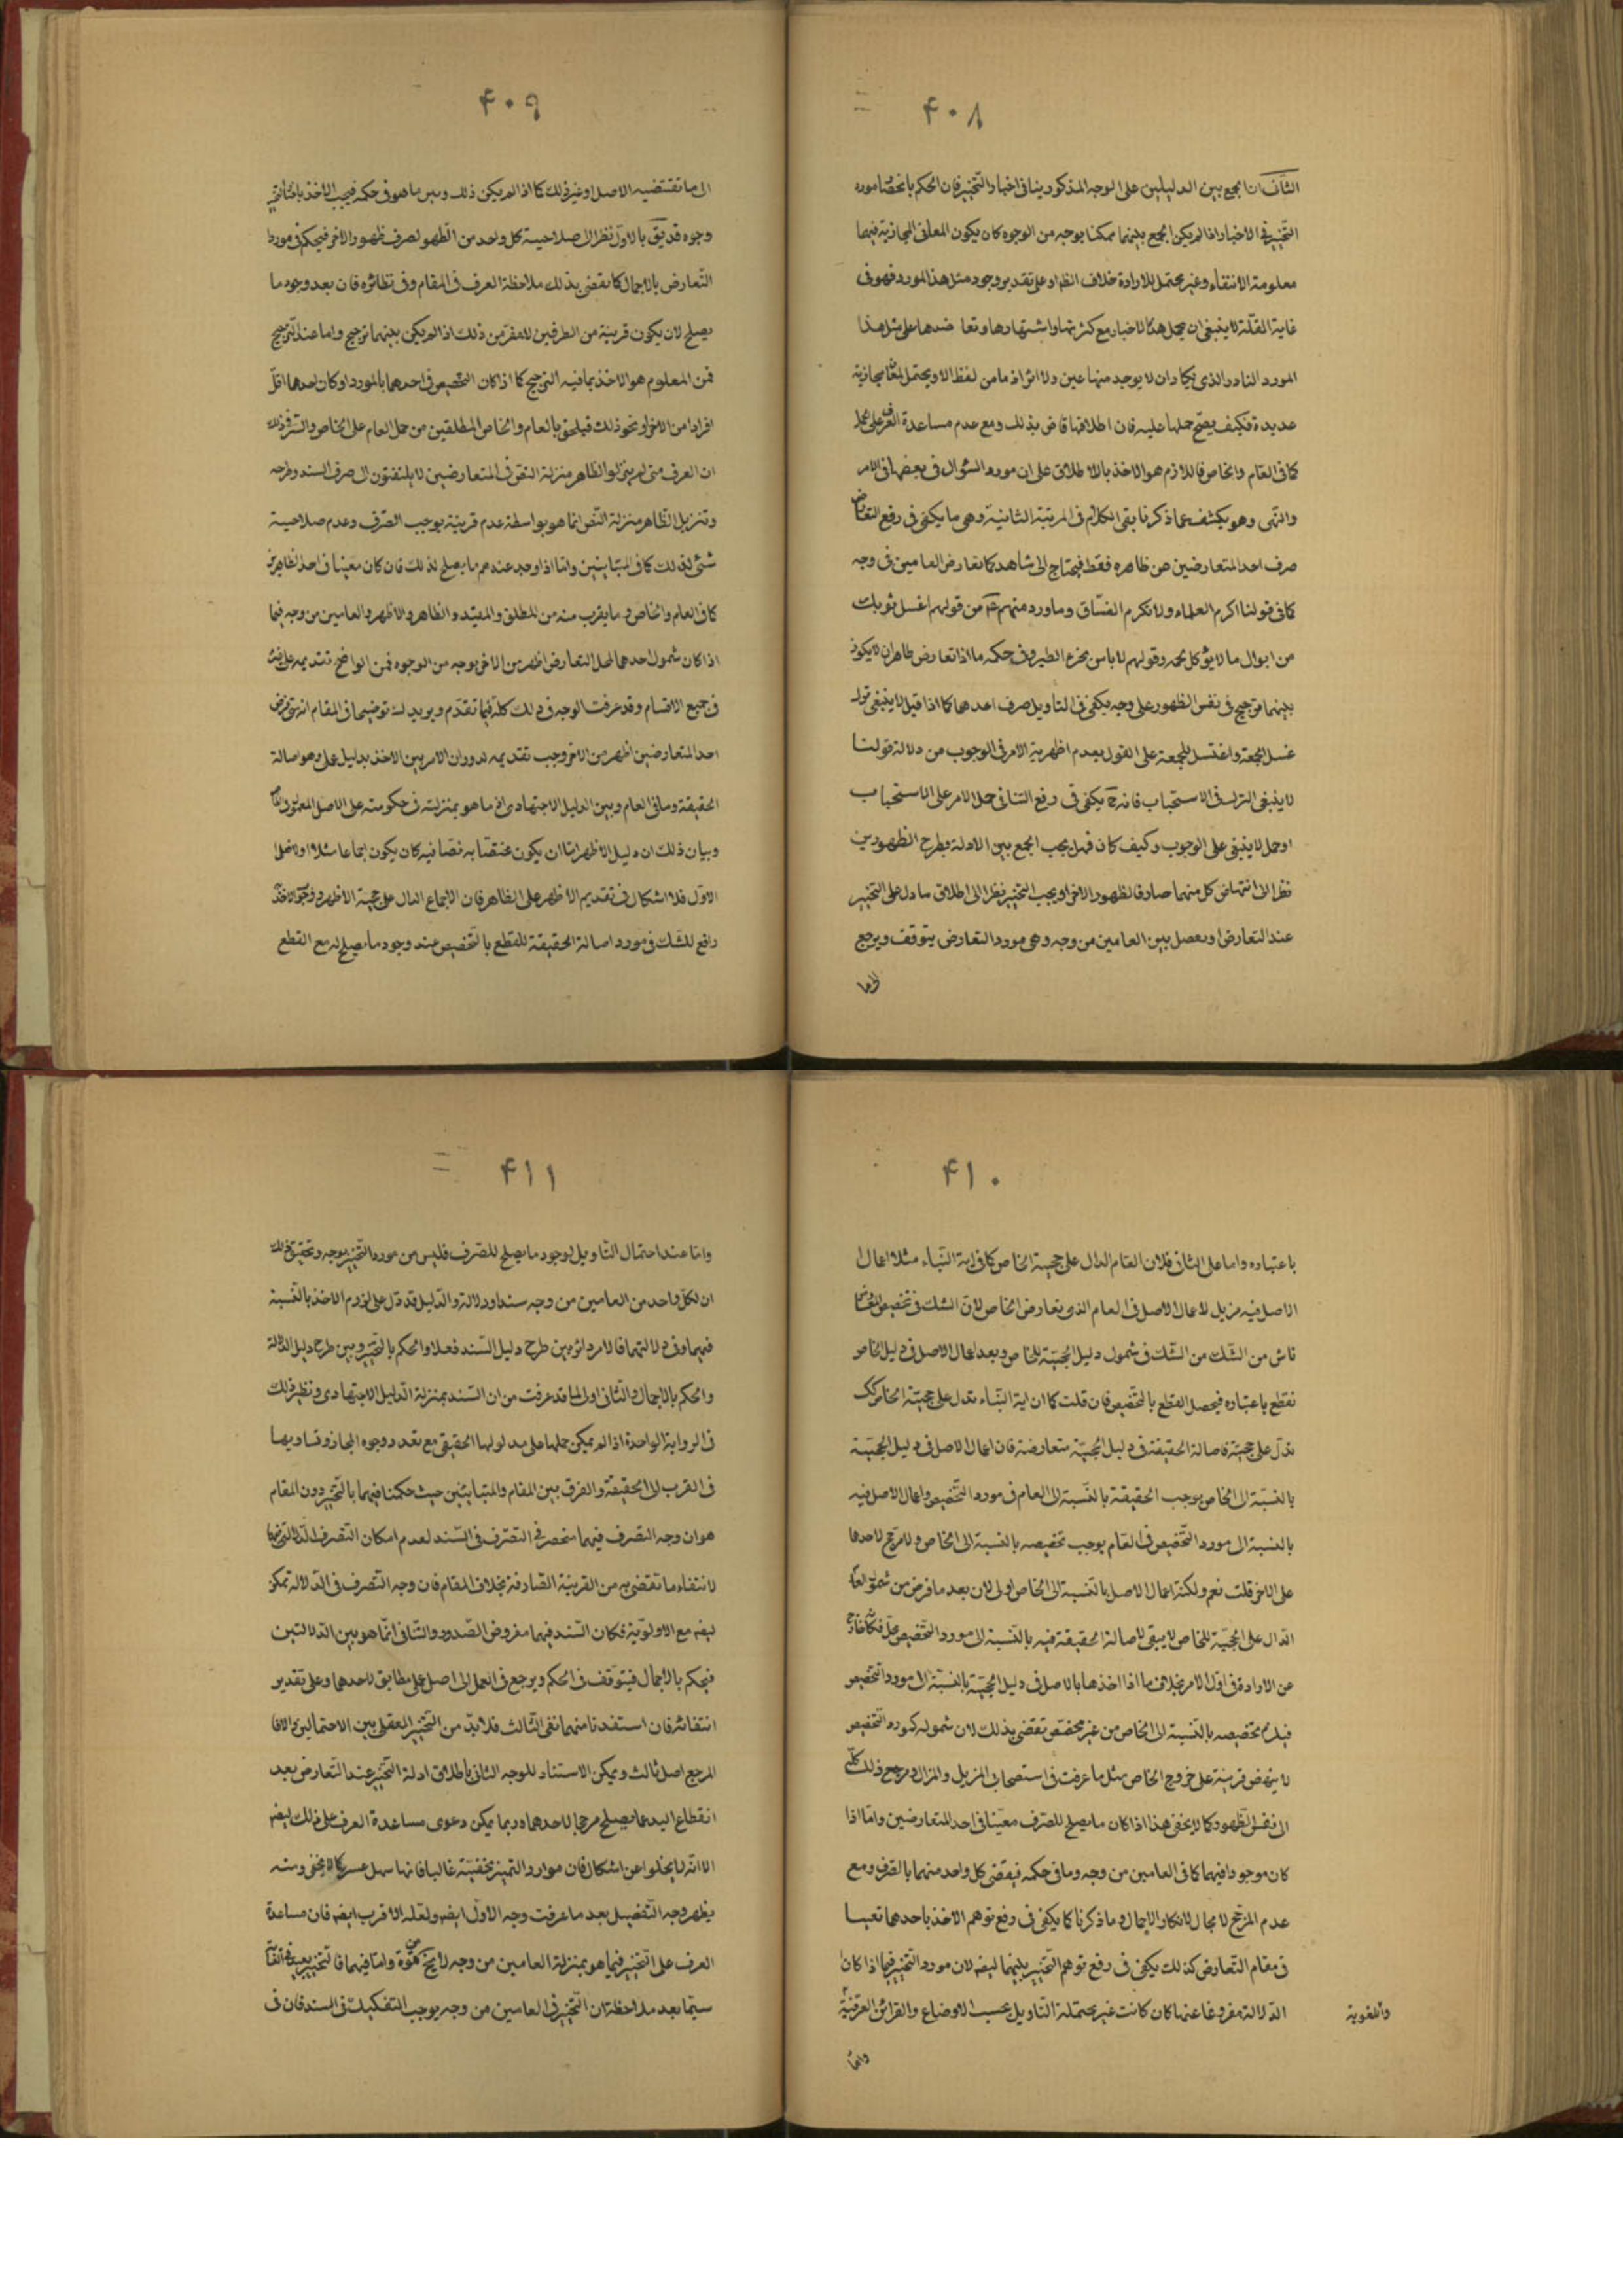 ۴۰۸
الثانی ان الجمع بین الدلیلین علی الوجه المذکور ینافی اخبار التخییر فان الحکم بانحصار مورد
التخییر فی الاخبار اذا لم یکن الجمع بینهما ممکنا بوجه من الوجوه کان یکون المعانی المجازیة فیهما
معلومة الانتفاء وغیر محتمل للارادة خلاف الظاهر علی تقدیر وجود مثل هذا المورد فهو فی
غایة القلة لا ینبغی ان یحمل هذه الاخبار مع کثرتها واشتهارها وتعاضدها علی مثل هذا
المورد النادر الذی یکاد ان لا یوجد منها عین ولا اثر اذ ما من لفظ الا ویحتمل لمعان مجازیة
عدیدة فکیف یصح حملها علیه فان اطلاقها قاض بذلک ومع عدم مساعدة العرف علی الحمل
کما فی العام والخاص فاللازم هو الاخذ بالاطلاق علی ان مورد السؤال فی بعضها فی الامر
والنهی وهو یکشف عما ذکرنا بقی الکلام فی المرتبة الثانیة وهی ما یکفی فی رفع التعارض
صرف احد المتعارضین عن ظاهره فقط فیحتاج الی شاهد کما تعارض العامین فی وجه
کما فی قولنا اکرم العلماء ولا تکرم الفساق وما ورد منهم عم من قولهم اغسل ثوبک
من ابوال ما لا یؤکل لحمه وقولهم لا باس بخرء الطیر وفی حکمه ما اذا تعارض ظاهران لا یکون
بینهما ترجیح فی نفس الظهور علی وجه یکفی فی التاویل صرف احدهما کما اذا قیل لا ینبغی ترک
غسل الجمعة واغتسل للجمعة علی القول بعدم اظهریة الامر فی الوجوب من دلالة قولنا
لا ینبغی الترک فی الاستحباب فانه ح یکفی فی رفع التنافی حمل الامر علی الاستحباب
او حمل لا ینبغی علی الوجوب وکیف کان فهل یجب الجمع بین الادلة وطرح الظهورین
نظرا الی انتهاض کل منهما صارفا لظهور الاخر او یجب التخییر نظرا الی اطلاق ما دل علی التخییر
عند التعارض او یفصل بین العامین من وجه وهی مورد التعارض یتوقف ویرجع
الی ما
۴۰۹
الی ما تقتضیه الاصل او غیر ذلک کما اذا لم یکن ذلک وبین ما هو فی حکمه فیجب الاخذ
وجوه قد یق بالاول نظرا الی صلاحیة کل واحد من الظهور لصرف ظهور الاخر فیحکم فی مورد
التعارض بالاجمال کما یقضی بذلک ملاحظة العرف فی المقام وفی نظائره فان بعد وجود ما
یصلح لان یکون قرینة من الطرفین لا مفر من ذلک اذا لم یکن بینهما ترجیح واما عند الترجیح
فمن المعلوم هو الاخذ بما فیه الترجیح کما اذا کان التخصیص فی احدهما بالمورد او کان احدهما اقل
افرادا من الاخر او نحو ذلک فیلحق بالعام والخاص المطلقین من حمل العام علی الخاص والسر فی ذلک
ان العرف متی لم ینزلوا الظاهر منزلة النص فی المتعارضین لا یلتفتون الی صرف السند وطرحه
وتنزیل الظاهر منزلة النص انما هو بواسطة عدم قرینة یوجب الصرف وعدم صلاحیة
شئ لذلک کما فی المتباینین واما اذا وجد عندهم ما یصلح لذلک فان کان معینا فی احد الظاهرین
کما فی العام والخاص وما یقرب منه من المطلق والمقید والظاهر والاظهر والعامین من وجه فیما
اذا کان شمول احدهما لمحل التعارض اظهر من الاخر بوجه من الوجوه فمن الواضح تقدیمه علی
فی جمیع الاقسام وقد عرفت الوجه فی ذلک کله فیما تقدم ویرید لک توضیحا فی المقام انه متی فرض
احد المتعارضین اظهر من الاخر وجب تقدیمه لدوران الامر بین الاخذ بدلیل علی وهو اصالة
الحقیقة وما فی العام وبین الدلیل الاجتهادی او ما هو بمنزلته فی حکومته علی الاصل
وبیان ذلک ان دلیل الاظهر اما ان یکون مختصا به نصا فیه کان یکون اجماعا مثلا او لا فعلی
الاول فلا اشکال فی تقدیم الاظهر علی الظاهر فان الاجماع الدال علی حجیة الاظهر ووجوب الاخذ
رافع للشک فی مورد اصالة الحقیقة للقطع بالتخصیص عند وجود ما یصلح له مع القطع
۴۱۰
باعتباره واما علی الثانی فلان العام الدال علی حجیة الخاص کما فی ایة النباء مثلا اعمال
الاصل فیه مزیل لاعمال الاصل فی العام الذی تعارض الخاص لان الشک فی تخصیص
ناش من الشک من الشک فی شمول دلیل الحجیة للخاص وبعد اعمال الاصل فی دلیل الخاص
نقطع باعتباره فیحصل القطع بالتخصیص فان قلت کما ان ایة النباء تدل علی حجیة الخاص کک
تدل علی حجیة فاصالة الحقیقة فی دلیل الحجیة متعارضة فان اعمال الاصل فی دلیل الحجیة
بالنسبة الی الخاص یوجب الحقیقة بالنسبة الی العام فی مورد التخصیص واعمال الاصل فیه
بالنسبة الی مورد التخصیص فی العام یوجب تخصیصه بالنسبة الی الخاص ولا مرجح لاحدهما
علی الاخر قلت نعم ولکنه اعمال الاصل بالنسبة الی الخاص اولی لان بعد ما فرض من شمول العام
الدال علی الحجیة للخاص لا یبقی لاصالة الحقیقة فیه بالنسبة الی مورد التخصیص محل فکانه خارج
عن الارادة فی اول الامر بخلاف ما اذا اخذ هنا بالاصل فی دلیل الحجیة بالنسبة الی مورد التخصیص
فیلزم تخصیصه بالنسبة الی الخاص من غیر مخصص تقضی بذلک لان شموله لمورد التخصیص
لا ینهض قرینة علی خروج الخاص مثل ما عرفت فی استصحاب المزیل والمزال ومرجع ذلک کله
الی نفس الظهور کما لا یخفی هذا اذا کان ما یصلح للصرف معینا فی احد المتعارضین واما اذا
کان موجودا فیهما کما فی العامین من وجه وما فی حکمه فیقضی کل واحد منهما بالصرف ومع
عدم المرجح لا مجال لانکار الاجمال وما ذکرنا کما یکفی فی رفع توهم الاخذ باحدهما تعیینا
فی مقام التعارض کذلک یکفی فی رفع توهم التخییر بینهما ایضا لان مورد التخییر فیما اذا کان
الدلالة مفروغا عنها کان کانت غیر محتملة التاویل بحسب الاوضاع والقرائن العرفیة
واللغویة
واما
۴۱۱
واما عند احتمال التاویل لوجود ما یصلح للصرف فلیس من مورد التخییر بوجه وتحقیق ذلک
ان لکل واحد من العامین من وجه سندا ودلالة والدلیل قد دل علی لزوم الاخذ بالنسبة
فیهما وفی دلالتهما فالامر دائر بین طرح دلیل السند فعلا والحکم بالتخییر وبین طرح دلیل الدلالة
والحکم بالاجمال والثانی اولی لما قد عرفت من ان السند بمنزلة الدلیل الاجتهادی ونظیر ذلک
فی الروایة الواحدة اذا لم یمکن حملها علی مدلولها الحقیقی مع تعدد وجوه المجاز وتساویها
فی القرب الی الحقیقة والفرق بین المقام والمتباینین حیث حکمنا فیهما بالتخییر دون المقام
هو ان وجه التصرف فیهما منحصر فی التصرف فی السند لعدم امکان التصرف فی الدلالة فیهما
لانتفاء ما تقضی به من القرینة الصارفة بخلاف المقام فان وجه التصرف فی الدلالة ممکن
ایضا مع الاولویة فکان السند فیهما مفروض الصدور والتنافی انما هو بین الدلالتین
فیحکم بالاجمال فیتوقف فی الحکم ویرجع فی العمل الی اصل علی مطابق لاحدهما وعلی تقدیر
انتفائه فان استفدنا منهما نفی الثالث فلا بد من التخییر العقلی بین الاحتمالین والا فا
المرجع اصل ثالث ویمکن الاستناد للوجه الثانی باطلاق ادلة التخییر عند التعارض بعد
انقطاع الید عما یصلح مرجحا لاحدهما وربما یمکن دعوی مساعدة العرف علی ذلک ایضا
الا انه لا یخلوا عن اشکال فان موارد التمییز مخفیة غالبا فانها سهل عسر کما لا یخفی ومنه
یظهر وجه التفصیل بعد ما عرفت وجه الاول ایضا ولعله الاقرب ایضا فان مساعدة
العرف علی التخییر فیما هو بمنزلة العامین من وجه لا یخ عن قوة واما فیهما فالتخییر بعید فی الغایة
سیما بعد ملاحظة ان التخییر فی العامین من وجه یوجب التفکیک فی السند فان فی